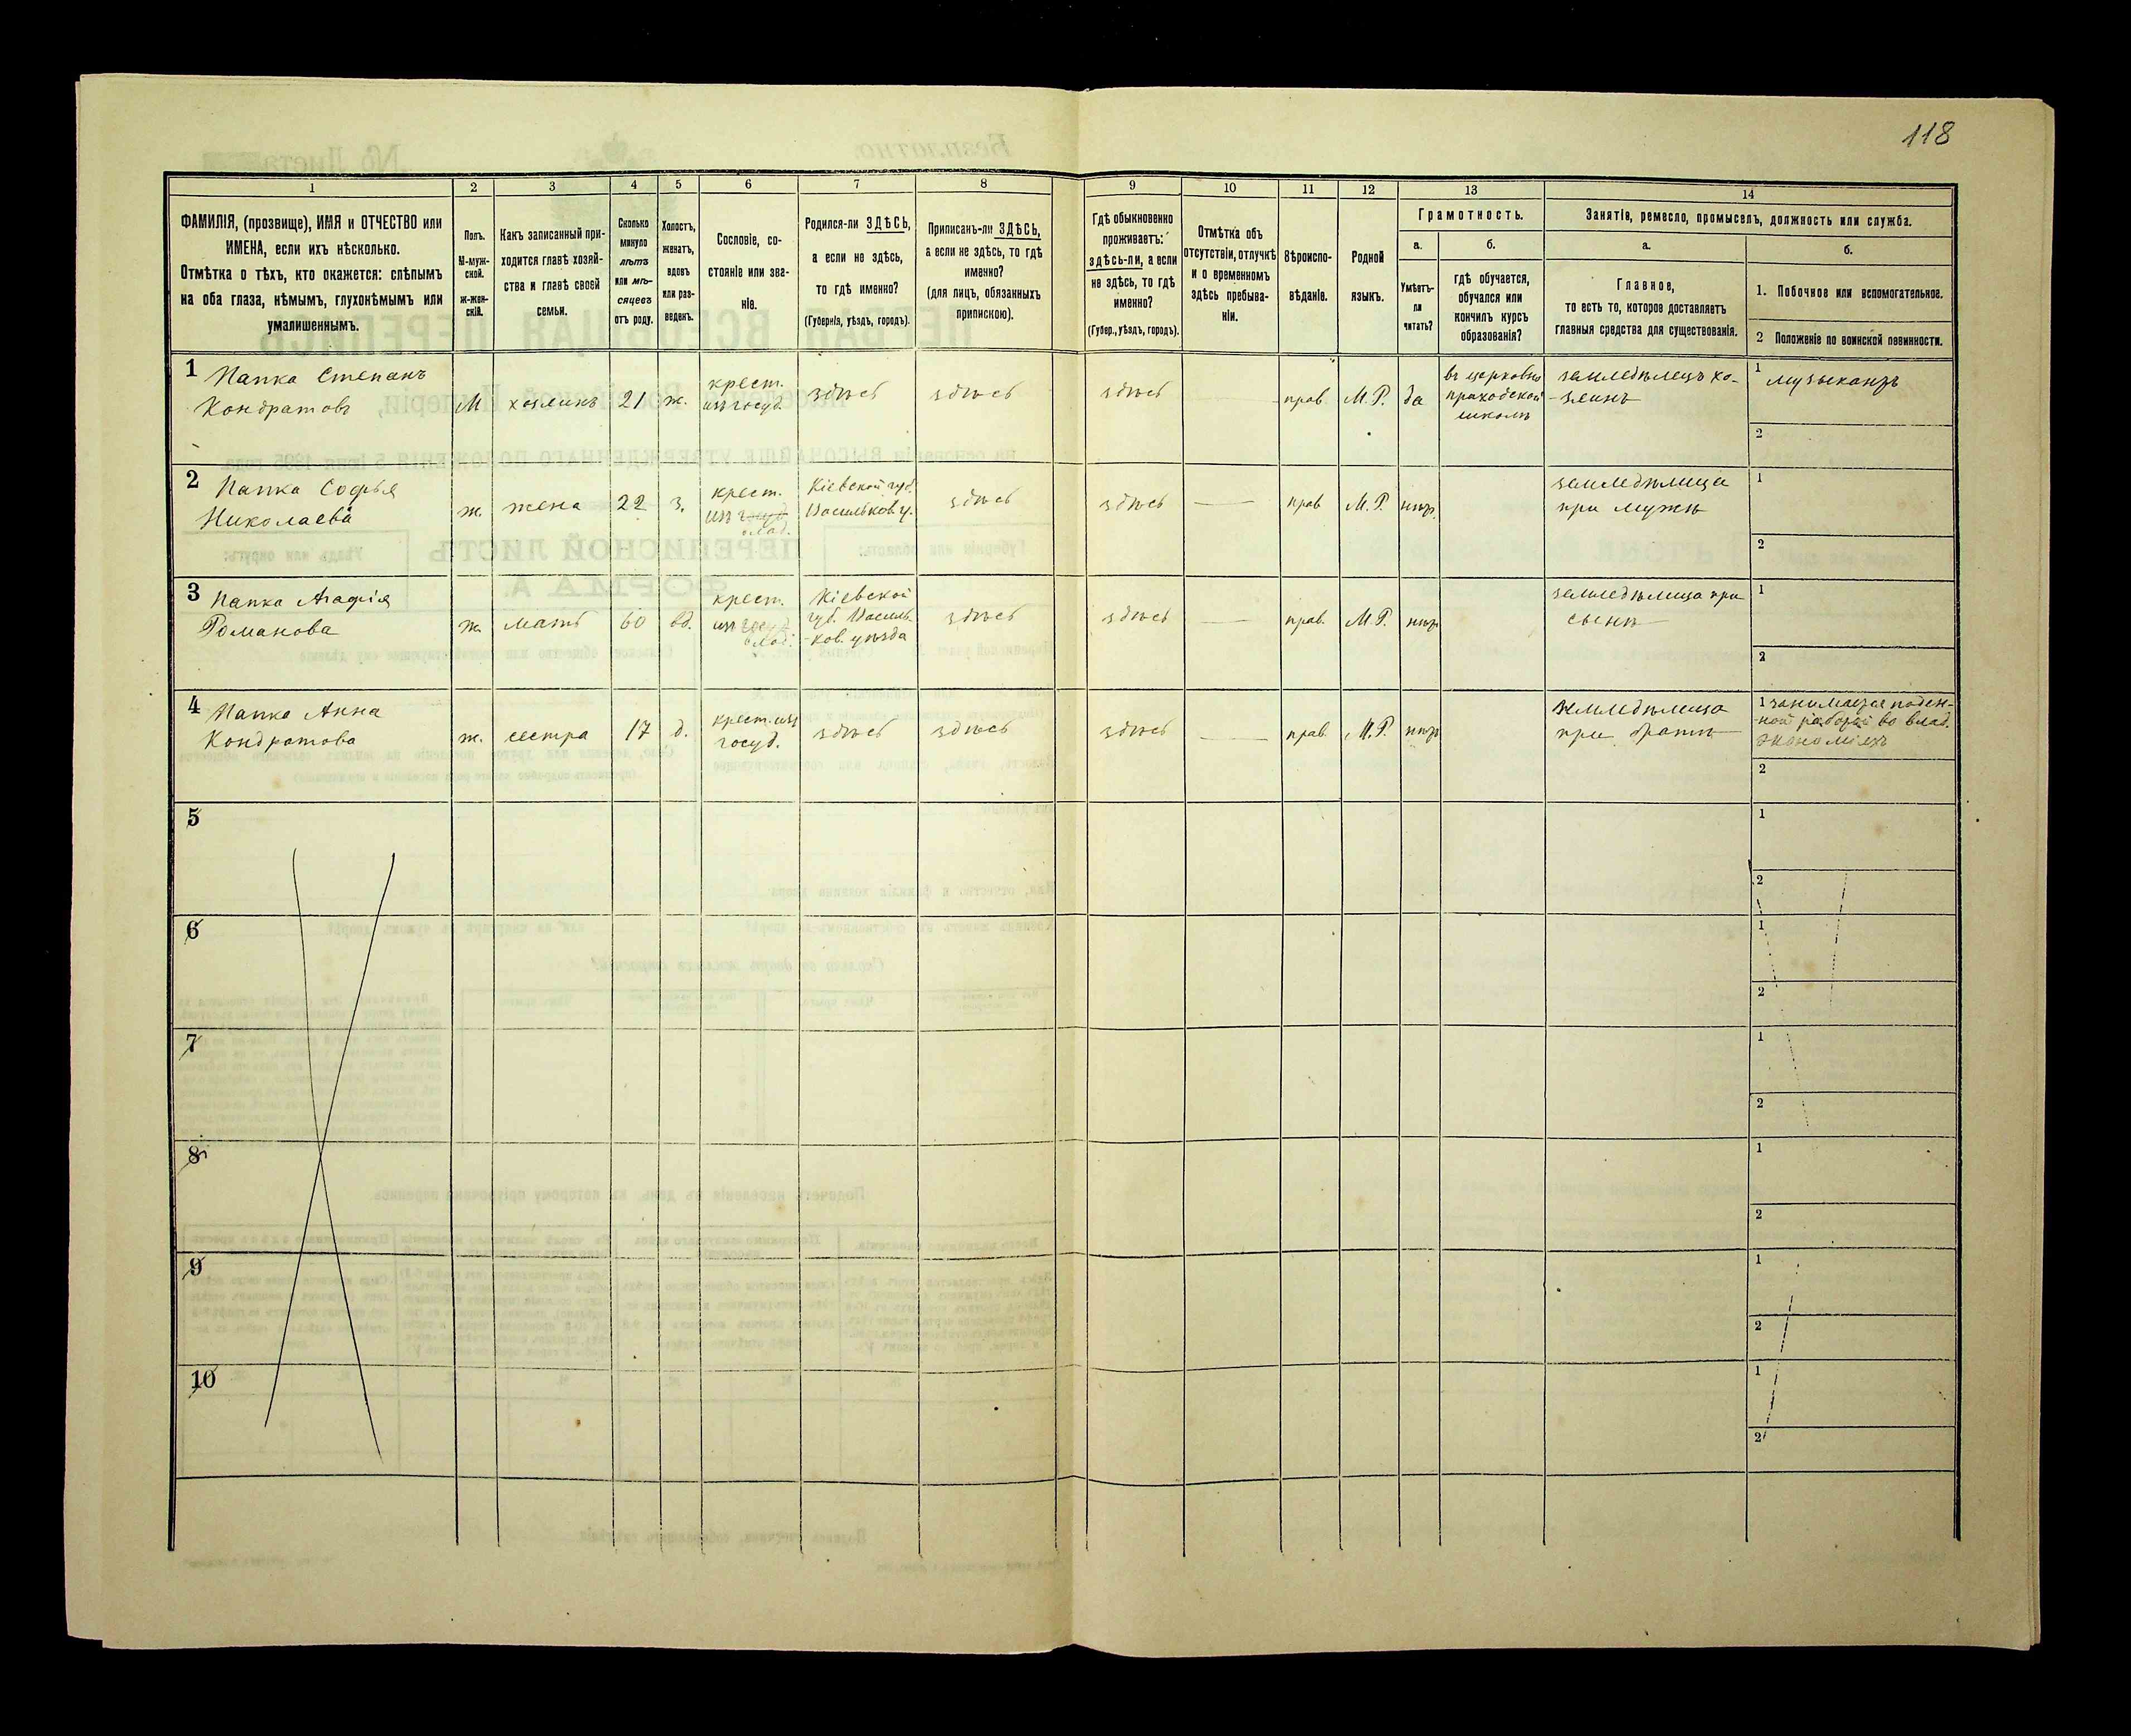 118
1 2 3 4 5 6 7 8 9 10 11 12 13 14
ФАМИЛІЯ, (прозвище), ИМЯ и ОТЧЕСТВО или
ИМЕНА, если ихъ нѣсколько.
Отмѣтка о тѣхъ, кто окажется: слѣпымъ
на оба глаза, нѣмымъ, глухонѣмымъ или
умалишеннымъ.
Полъ.
М-муж-
ской.
ж-жен-
скій.
Какъ записанный при-
ходится главѣ хозяй-
ства и главѣ своей
семьи.
Сколько
минуло
лѣтъ
или мѣ-
сяцевъ
отъ роду.
Холостъ,
женатъ,
вдовъ
или раз-
веденъ.
Сословіе, со-
стояніе или зва-
ніе.
Родился-ли ЗДѢСЬ,
а если не здѣсь,
то гдѣ именно?
(Губернія, уѣздъ, городъ).
Приписанъ-ли ЗДѢСЬ,
а если не здѣсь, то гдѣ
именно?
(для лицъ, обязанныхъ
припискою).
Гдѣ обыкновенно
проживаетъ:
здѣсь-ли, а если
не здѣсь, то гдѣ
именно?
(Губер., уѣздъ, городъ).
Отмѣтка объ
отсутствіи, отлучкѣ
и о временномъ
здѣсь пребыва-
ніи.
Вѣроиспо-
вѣданіе.
Родной
языкъ.
Грамотность.
а.
Умѣетъ-
ли
читать?
б.
гдѣ обучается,
обучался или
кончилъ курсъ
образованія?
Занятія, ремесло, промыселъ, должность или служба.
а.
Главное,
то есть то, которое доставляетъ
главныя средства для существованія.
б.
1. Побочное или вспомогательное.
2 Положеніе по воинской повинности.
1 Папка Степанъ
Кондратовъ
М
хозяинъ
21
ж.
крест.
изъ госуд.
здѣсь
здѣсь
здѣсь
прав.
М.Р.
да
въ церковно
приходской
школѣ
земледѣлецъ хо-
-зяинъ
1 музыкантъ
2
2 Папка Софья
Николаева
ж.
жена
22
з.
крест.
изъ госуд.
влад.
Кіевской губ.
Васильков у.
здѣсь
здѣсь
прав
М.Р.
нѣт.
земледѣлица
при мужѣ
1
2
3 Папка Агафія
Романова
ж.
мать
60
вд.
крест.
изъ госуд.
влад.
Кіевской
губ. Василь-
-ков. уѣзда
здѣсь
здѣсь
прав.
М.Р.
нѣт
земледѣлица при
сынѣ
1
2
4 Папка Анна
Кондратова
ж.
сестра
17
д.
крест. изъ
госуд.
здѣсь
здѣсь
здѣсь
прав.
М.Р.
нѣт
земледѣлица
при братѣ
1 занимается поден-
-ной работой во влад.
экономіяхъ
2
5
1
2
6
1
2
7
1
2
8
1
2
9
1
2
10
1
2